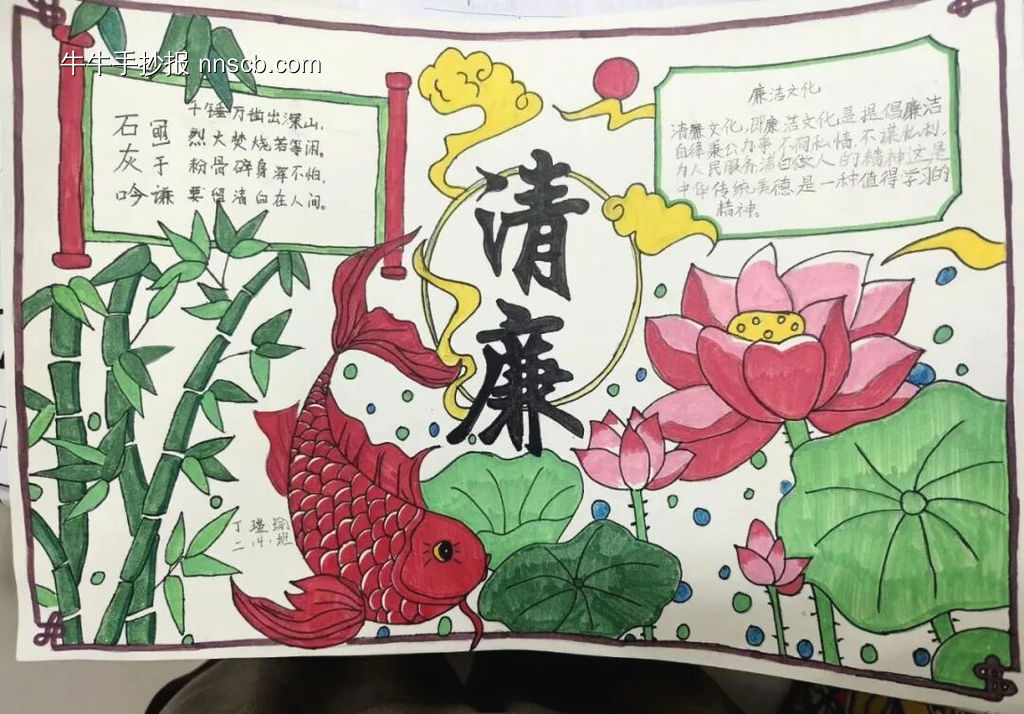 牛牛手抄报 nnscb.com
石灰吟
于谦
千锤万凿出深山,
烈火焚烧若等闲。
粉骨碎身浑不怕,
要留清白在人间。
清廉
廉洁文化
清廉文化,即廉洁文化是提倡廉洁
自律秉公办事,不徇私情,不谋私利,
为人民服务清白做人的精神这是
中华传统美德是一种值得学习的
精神。
丁瑾瑜
二、4、班